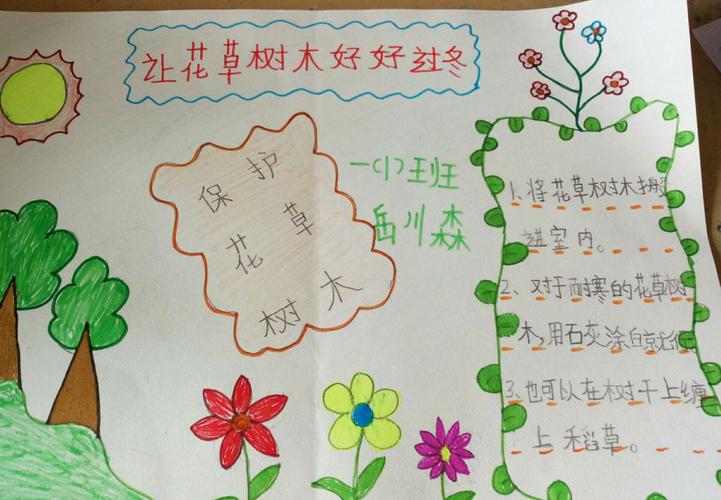 让花草树木好好过冬
保护
花草
树木
一(1)班
岳川森
1、将花草树木搬
进室内。
2、对于耐寒的花草树
木,用石灰涂白就行
3、也可以在树干上缠
上稻草。